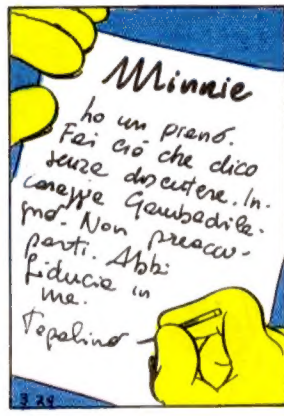 Minnie
ho un piano.
Fai ciò che dico
senza discutere. In-
coraggia Gambadile-
gno. Non preoccu-
parti. Abbi
fiducia in
me.
Topolino
3 29